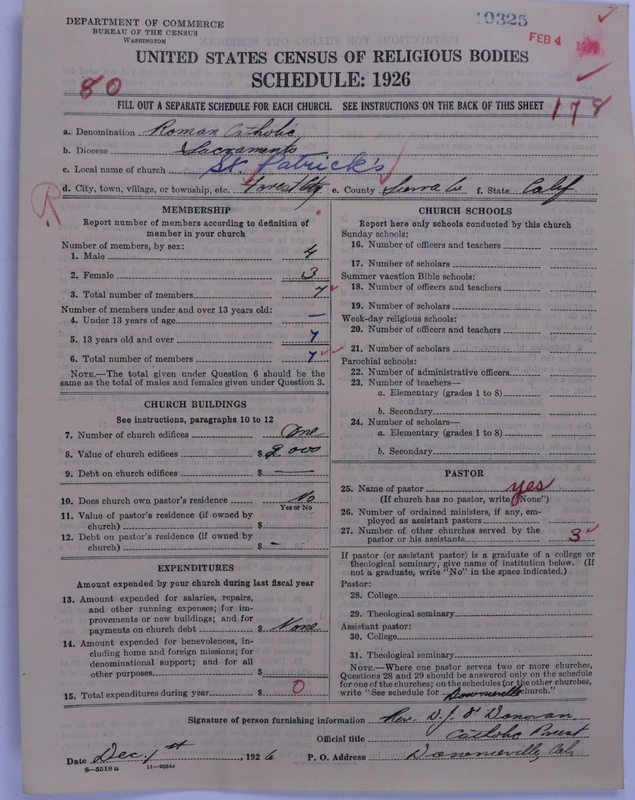 DEPARTMENT OF COMMERCE
BUREAU OF THE CENSUS
WASHINGTON
19325
FEB 4
UNITED STATES CENSUS OF RELIGIOUS BODIES
SCHEDULE: 1926
80
FILL OUT A SEPARATE SCHEDULE FOR EACH CHURCH. SEE INSTRUCTIONS ON THE BACK OF THIS SHEET
178
a. Denomination Roman Catholic
b. Diocese Sacramento
c. Local name of church St. Patrick's
d. City, town, village, or township, etc. Forest City e. County Sierra Co f. State Calif
MEMBERSHIP
Report number of members according to definition of
member in your church
Number of members, by sex:
1. Male 4
2. Female 3
3. Total number of members 7
Number of members under and over 13 years old:
4. Under 13 years of age —
5. 13 years old and over 7
6. Total number of members 7
NOTE.—The total given under Question 6 should be the
same as the total of males and females given under Question 3.
CHURCH BUILDINGS
See instructions, paragraphs 10 to 12
7. Number of church edifices One
8. Value of church edifices $ 2000
9. Debt on church edifices $ —
10. Does church own pastor's residence No
Yes or No
11. Value of pastor's residence (if owned by
church) $
12. Debt on pastor's residence (if owned by
church) $ —
EXPENDITURES
Amount expended by your church during last fiscal year
13. Amount expended for salaries, repairs,
and other running expenses; for im-
provements or new buildings; and for
payments on church debt $ None
14. Amount expended for benevolences, in-
cluding home and foreign missions; for
denominational support; and for all
other purposes $
15. Total expenditures during year $ 0
CHURCH SCHOOLS
Report here only schools conducted by this church
Sunday schools:
16. Number of officers and teachers
17. Number of scholars
Summer vacation Bible schools:
18. Number of officers and teachers
19. Number of scholars
Week-day religious schools:
20. Number of officers and teachers
21. Number of scholars
Parochial schools:
22. Number of administrative officers
23. Number of teachers—
a. Elementary (grades 1 to 8)
b. Secondary
24. Number of scholars—
a. Elementary (grades 1 to 8)
b. Secondary
PASTOR
25. Name of pastor yes
(If church has no pastor, write "None")
26. Number of ordained ministers, if any, em-
ployed as assistant pastors
27. Number of other churches served by the
pastor or his assistants 3
If pastor (or assistant pastor) is a graduate of a college or
theological seminary, give name of institution below. (If
not a graduate, write "No" in the space indicated.)
Pastor:
28. College
29. Theological seminary
Assistant pastor:
30. College
31. Theological seminary
NOTE.—Where one pastor serves two or more churches,
Questions 28 and 29 should be answered only on the schedule
for one of the churches; on the schedules for the other churches,
write "See schedule for Downieville church."
Signature of person furnishing information Rev. D. J. O'Donovan
Official title Catholic Priest
Date Dec. 1st, 1926 P. O. Address Downieville, Cal.
8—5518a 11—9684a